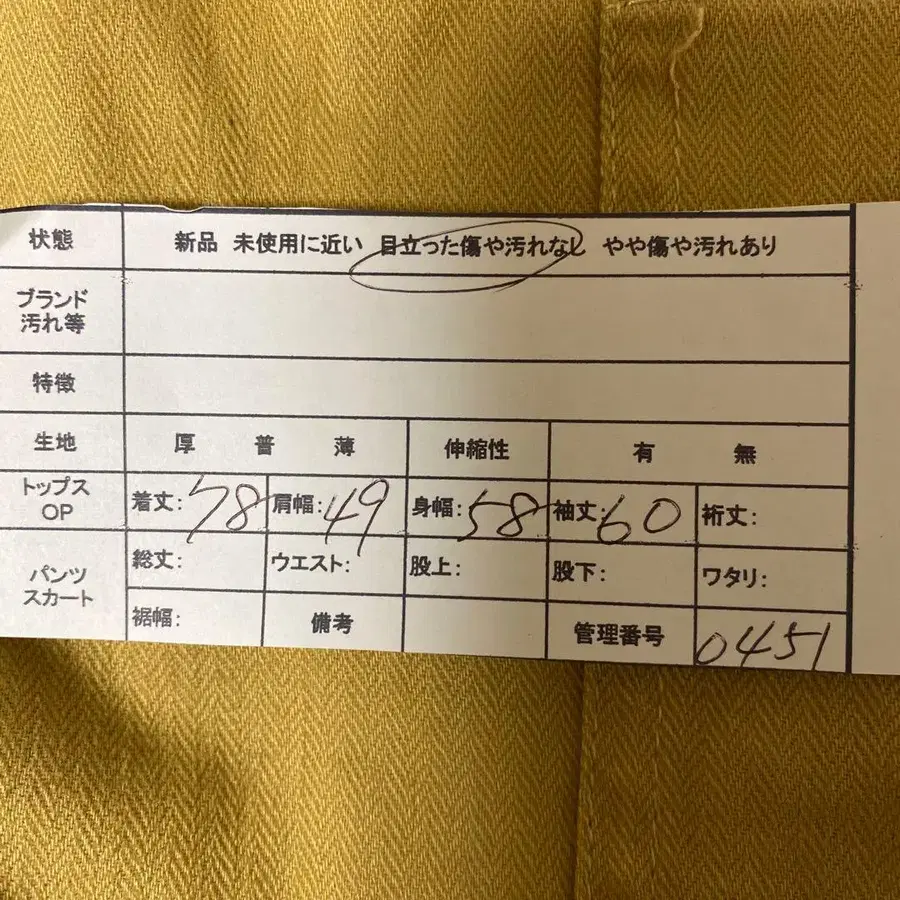 状態 新品 未使用に近い 目立った傷や汚れなし やや傷や汚れあり
ブランド
汚れ等
特徴
生地 厚 普 薄 伸縮性 有 無
トップス
OP
着丈:78 肩幅:49 身幅:58 袖丈:60 裄丈:
パンツ
スカート
総丈: ウエスト: 股上: 股下: ワタリ:
裾幅: 備考 管理番号 0451